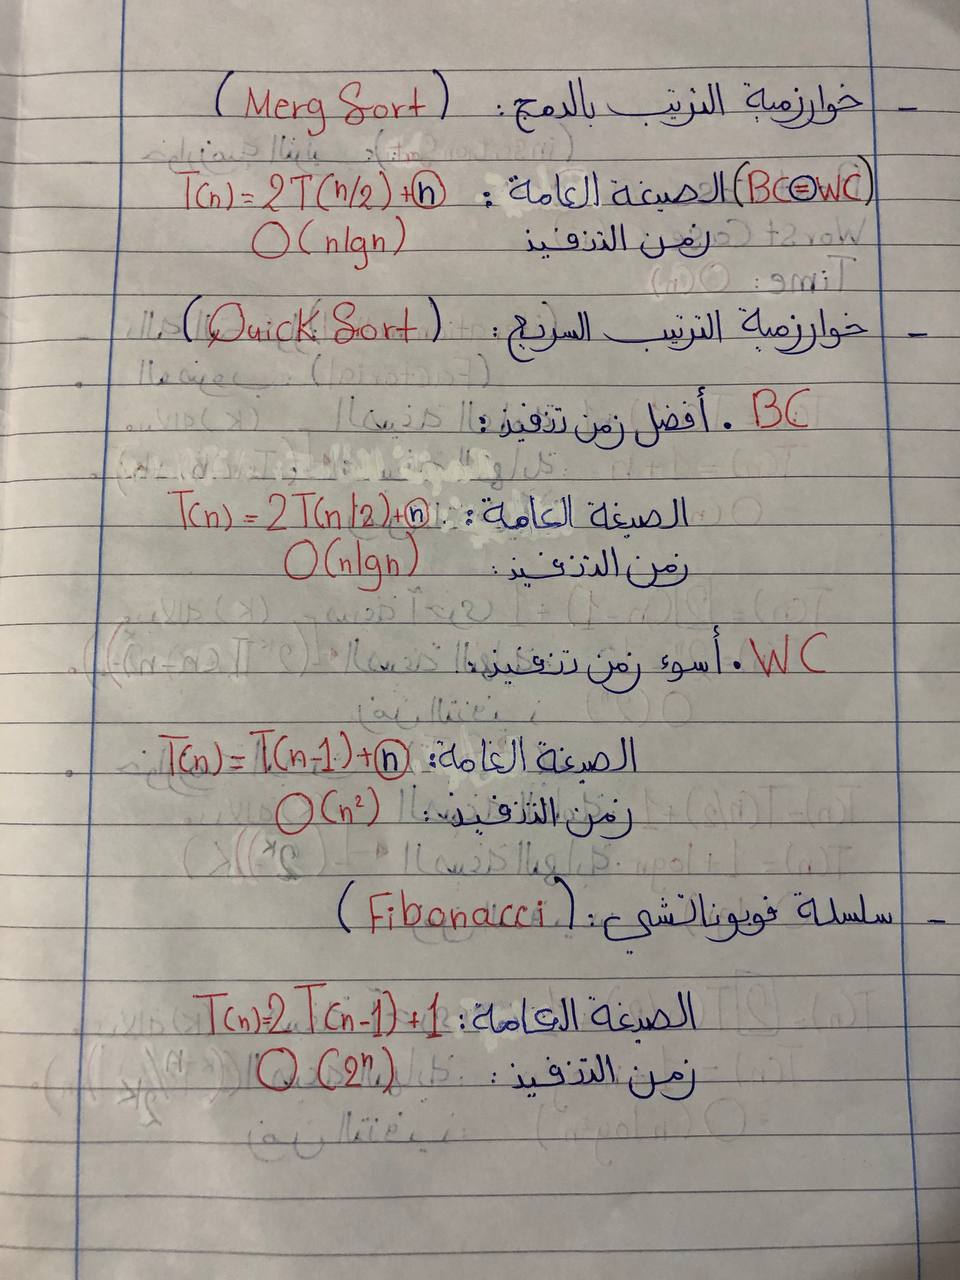 - خوارزمية الترتيب بالدمج: (Merg Sort)
(BC=WC) الصيغة العامة: T(n) = 2T(n/2) + n
زمن التنفيذ O(nlgn)
- خوارزمية الترتيب السريع: (Quick Sort)
BC . أفضل زمن تنفيذ:
الصيغة العامة: T(n) = 2T(n/2) + n
زمن التنفيذ: O(nlgn)
WC . أسوء زمن تنفيذ:
الصيغة العامة: T(n) = T(n-1) + n
زمن التنفيذ: O(n²)
- سلسلة فوبوناتشي: (Fibonacci)
الصيغة العامة: T(n)=2T(n-1)+1
زمن التنفيذ: O(2ⁿ)